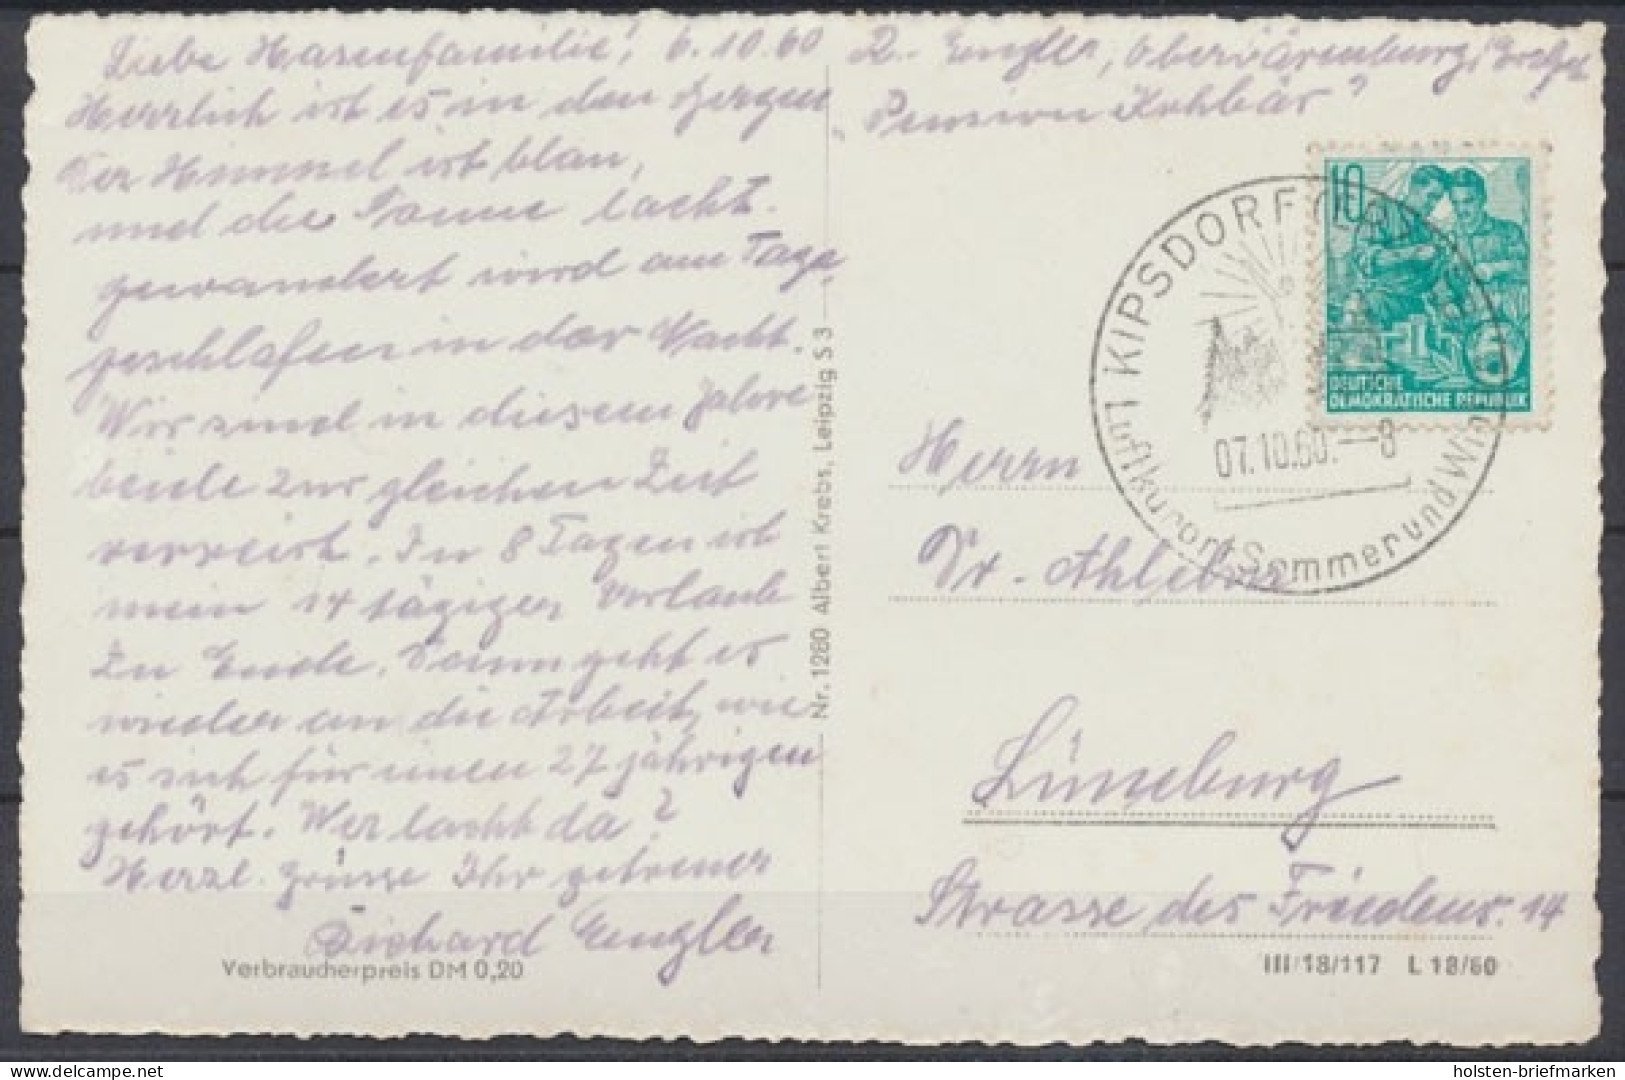 Liebe Hasenfamilie! 6.10.60
Herrlich ist es in den Bergen
Der Himmel ist blau,
und die Tanne lacht.
gewandert wird am Tage,
geschlafen in der Nacht.
Wir sind in diesem Jahre
beide zur gleichen Zeit
verreist. In 8 Tagen ist
mein 14 tägiger Urlaub
zu Ende. Dann geht es
wieder an die Arbeit, wie
es sich für einen 27 jährigen
gehört. Wer lacht da?
Herzl. Grüsse Ihr getreuer
Richard Engler
Verbraucherpreis DM 0,20
Nr. 1280 Albert Krebs, Leipzig S 3
R. Engler, Oberbärenburg, Erzgeb.
Pension
10
DEUTSCHE
DEMOKRATISCHE REPUBLIK
KIPSDORF (ERZGEB)
07.10.60.-8
Luftkurort Sommer und Win
Herrn
Dr.
Lüneburg
Strasse des Friedens 14
III/18/117 L 18/60
holsten-briefmarken
delcampe.net